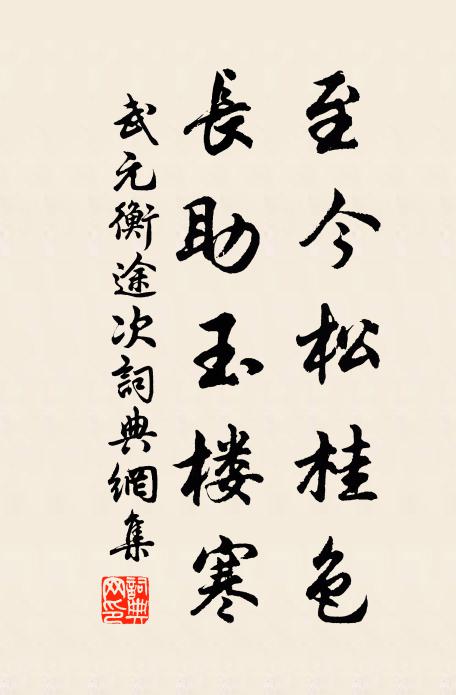 至今松桂色
長助玉楼寒
武元衡途次詞典網集
詞典网印